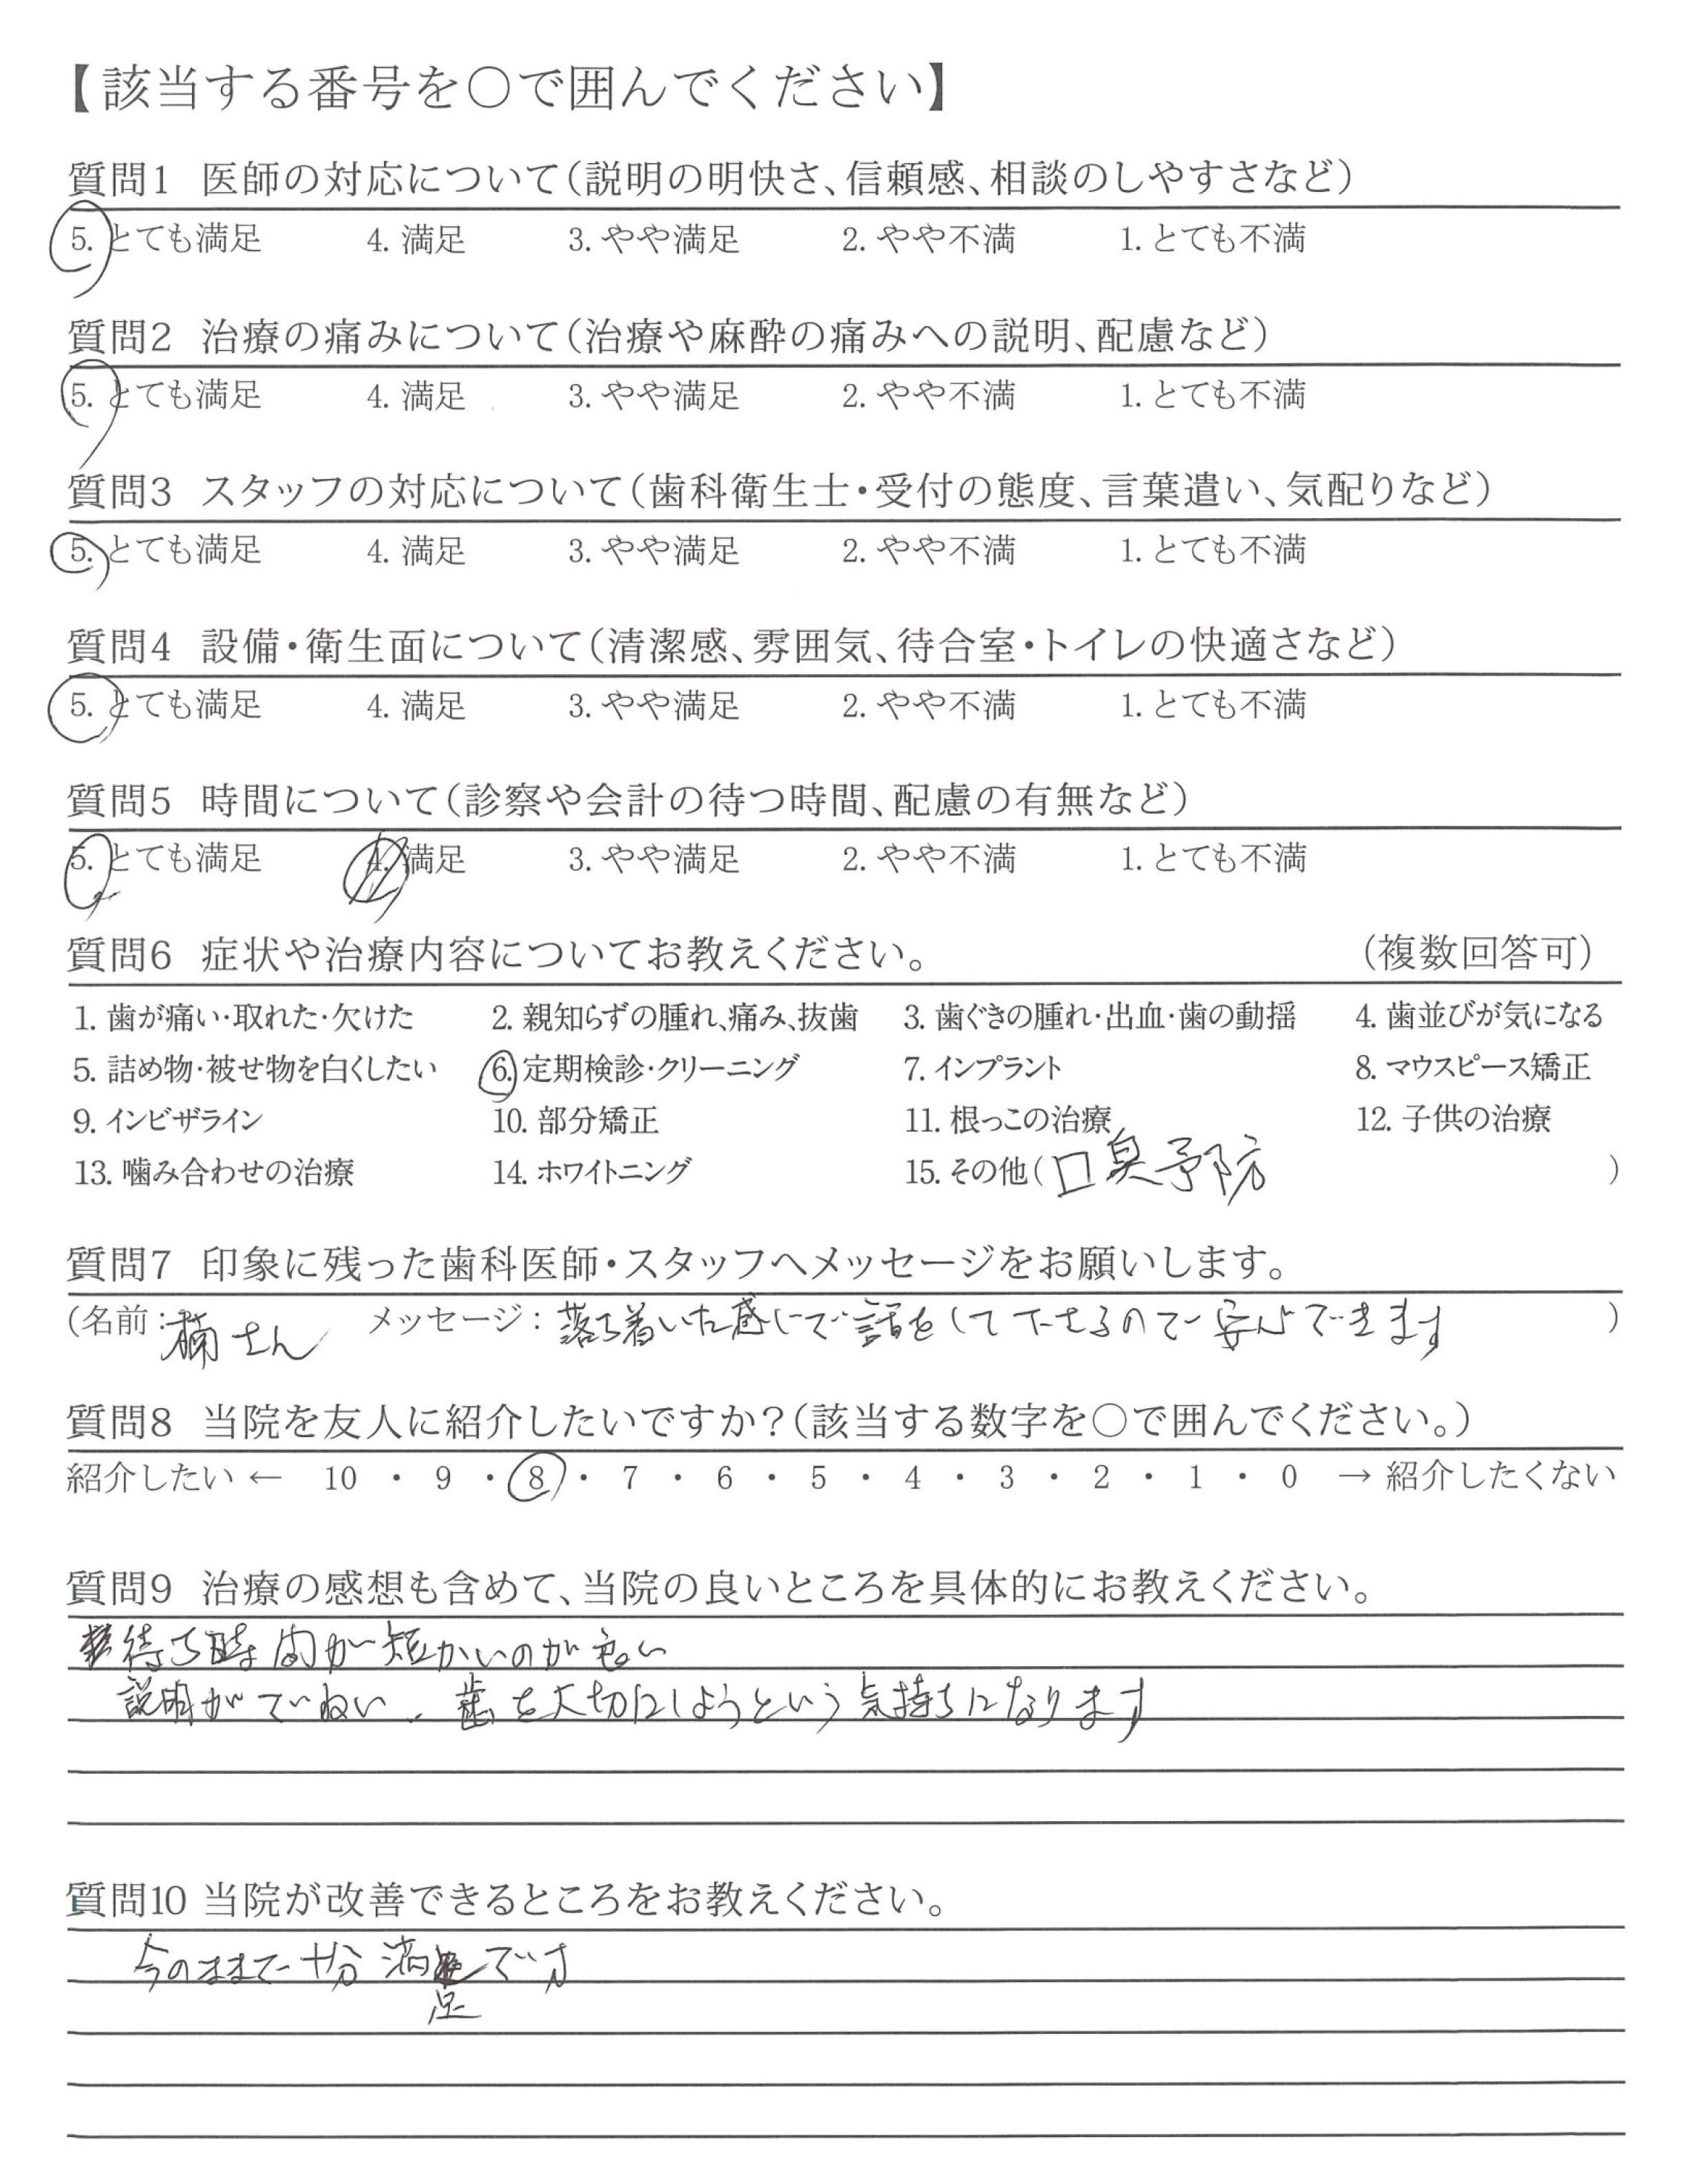 【該当する番号を〇で囲んでください】
質問1 医師の対応について(説明の明快さ、信頼感、相談のしやすさなど)
5. とても満足 4. 満足 3. やや満足 2. やや不満 1. とても不満
質問2 治療の痛みについて(治療や麻酔の痛みへの説明、配慮など)
5. とても満足 4. 満足 3. やや満足 2. やや不満 1. とても不満
質問3 スタッフの対応について(歯科衛生士・受付の態度、言葉遣い、気配りなど)
5. とても満足 4. 満足 3. やや満足 2. やや不満 1. とても不満
質問4 設備・衛生面について(清潔感、雰囲気、待合室・トイレの快適さなど)
5. とても満足 4. 満足 3. やや満足 2. やや不満 1. とても不満
質問5 時間について(診察や会計の待つ時間、配慮の有無など)
5. とても満足 4. 満足 3. やや満足 2. やや不満 1. とても不満
質問6 症状や治療内容についてお教えください。 (複数回答可)
1. 歯が痛い・取れた・欠けた 2. 親知らずの腫れ、痛み、抜歯 3. 歯ぐきの腫れ・出血・歯の動揺 4. 歯並びが気になる
5. 詰め物・被せ物を白くしたい 6. 定期検診・クリーニング 7. インプラント 8. マウスピース矯正
9. インビザライン 10. 部分矯正 11. 根っこの治療 12. 子供の治療
13. 噛み合わせの治療 14. ホワイトニング 15. その他(口臭予防)
質問7 印象に残った歯科医師・スタッフへメッセージをお願いします。
(名前:楠さん メッセージ:落ち着いた感じで話をして下さるので安心できます)
質問8 当院を友人に紹介したいですか?(該当する数字を〇で囲んでください。)
紹介したい ← 10 ・ 9 ・ 8 ・ 7 ・ 6 ・ 5 ・ 4 ・ 3 ・ 2 ・ 1 ・ 0 → 紹介したくない
質問9 治療の感想も含めて、当院の良いところを具体的にお教えください。
待ち時間が短かいのが良い
説明がていねい、歯を大切にしようという気持ちになります
質問10 当院が改善できるところをお教えください。
今のままで十分満足です